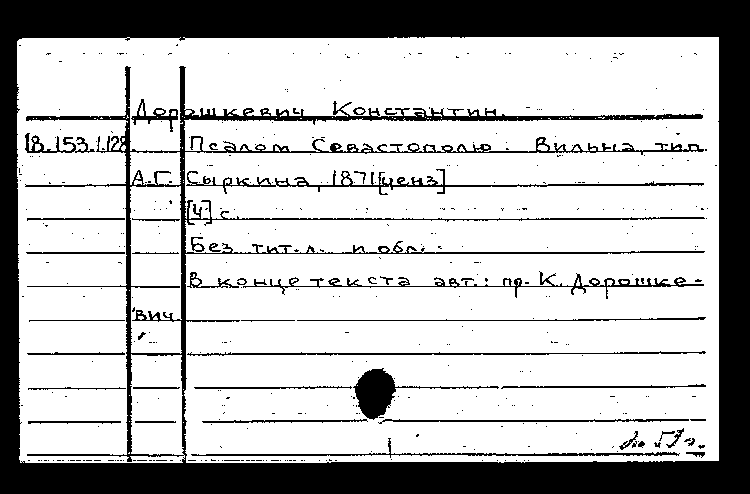 Дорошкевич, Константин.
18.153.1.128. Псалом Севастополю. Вильна, тип.
А.Г. Сыркина, 1871 [ценз]
[4] с.
Без тит. л. и обл.
В конце текста авт.: пр. К. Дорошке-
вич.